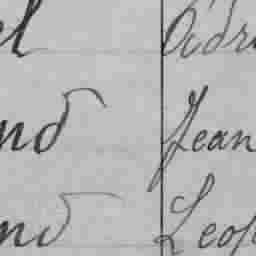 el Adr
nd Jean
nd Leop